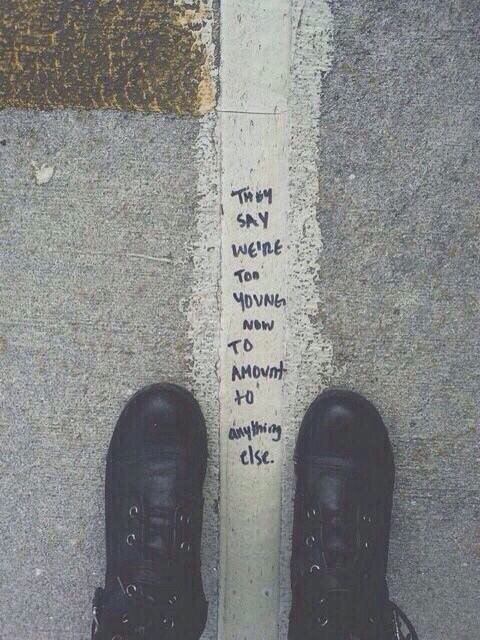 THEY
SAY
WE'RE
TOO
YOUNG
NOW
TO
AMOUNt
tO
anything
else.